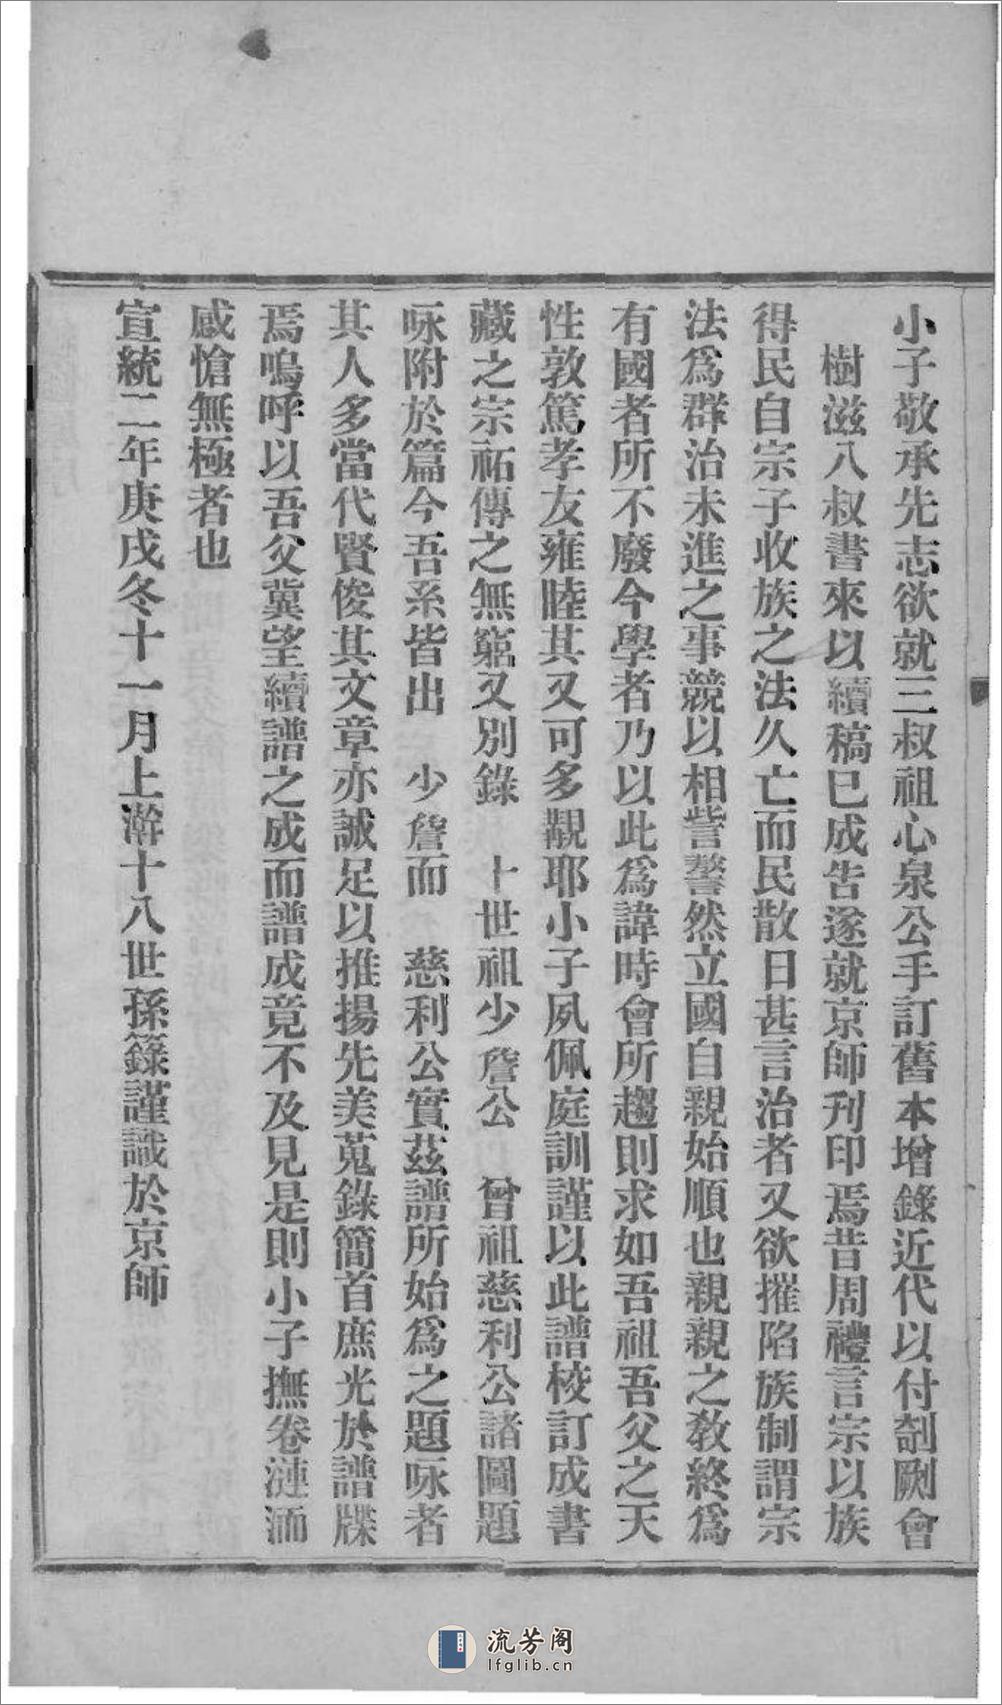 小子敬承先志欲就三叔祖心泉公手訂舊本增錄近代以付剞劂會
樹滋八叔書來以續稿已成告遂就京師刊印焉昔周禮言宗以族
得民自宗子收族之法久亡而民散日甚言治者又欲摧陷族制謂宗
法爲群治未進之事競以相訾謷然立國自親始順也親親之教終爲
有國者所不廢今學者乃以此爲諱時會所趨則求如吾祖吾父之天
性敦篤孝友雍睦其又可多覯耶小子夙佩庭訓謹以此譜校訂成書
藏之宗祏傳之無窮又別錄 十世祖少詹公 曾祖慈利公諸圖題
咏附於篇今吾系皆出 少詹而 慈利公實茲譜所始爲之題咏者
其人多當代賢俊其文章亦誠足以推揚先美蒐錄簡首庶光於譜牒
焉嗚呼以吾父冀望續譜之成而譜成竟不及見是則小子撫卷漣洏
感愴無極者也
宣統二年庚戌冬十一月上澣十八世孫籙謹識於京師
流芳阁
lfglib.cn